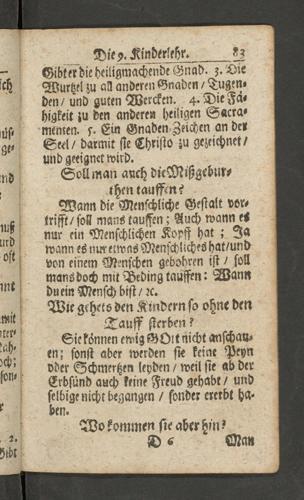 Die 9. Kinderlehr. 83
Gibt er die heiligmachende Gnad. 3. Die
Wurtzel zu all anderen Gnaden / Tugen-
den / und guten Wercken. 4. Die Fä-
higkeit zu den anderen heiligen Sacra-
menten. 5. Ein Gnaden-Zeichen an der
Seel / darmit sie Christo zu gezeichnet /
und geeignet wird.
Soll man auch die Mißgebur-
then tauffen?
Wann die Menschliche Gestalt vor-
trifft / soll mans tauffen; Auch wann es
nur ein Menschlichen Kopff hat; Ja
wann es nur etwas Menschliches hat / und
von einem Menschen gebohren ist / soll
mans doch mit Beding tauffen: Wann
du ein Mensch bist / ꝛc.
Wie gehets den Kindern so ohne den
Tauff sterben?
Sie können ewig GOtt nicht anschau-
en; sonst aber werden sie keine Peyn
oder Schmertzen leyden / weil sie ab der
Erbsünd auch keine Freud gehabt / und
selbige nicht begangen / sonder ererbt ha-
ben.
Wo kommen sie aber hin?
D 6 Man